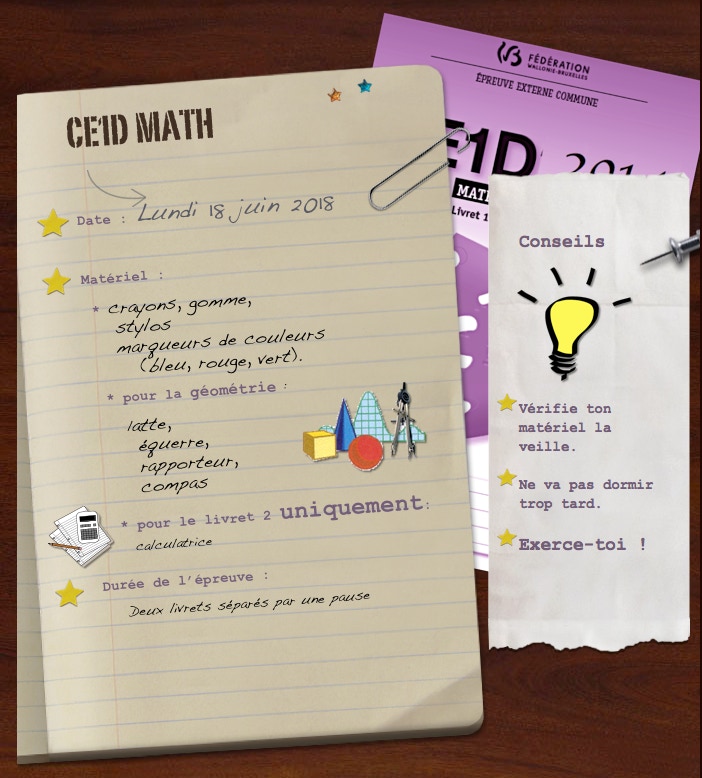 CE1D MATH
Date : Lundi 18 juin 2018
Matériel :
* crayons, gomme,
stylos
marqueurs de couleurs
(bleu, rouge, vert).
* pour la géométrie :
latte,
équerre,
rapporteur,
compas
* pour le livret 2 uniquement:
calculatrice
Durée de l'épreuve :
Deux livrets séparés par une pause
FÉDÉRATION
WALLONIE-BRUXELLES
ÉPREUVE EXTERNE COMMUNE
E1D
MAT
Livret 1
Conseils
Vérifie ton
matériel la
veille.
Ne va pas dormir
trop tard.
Exerce-toi !